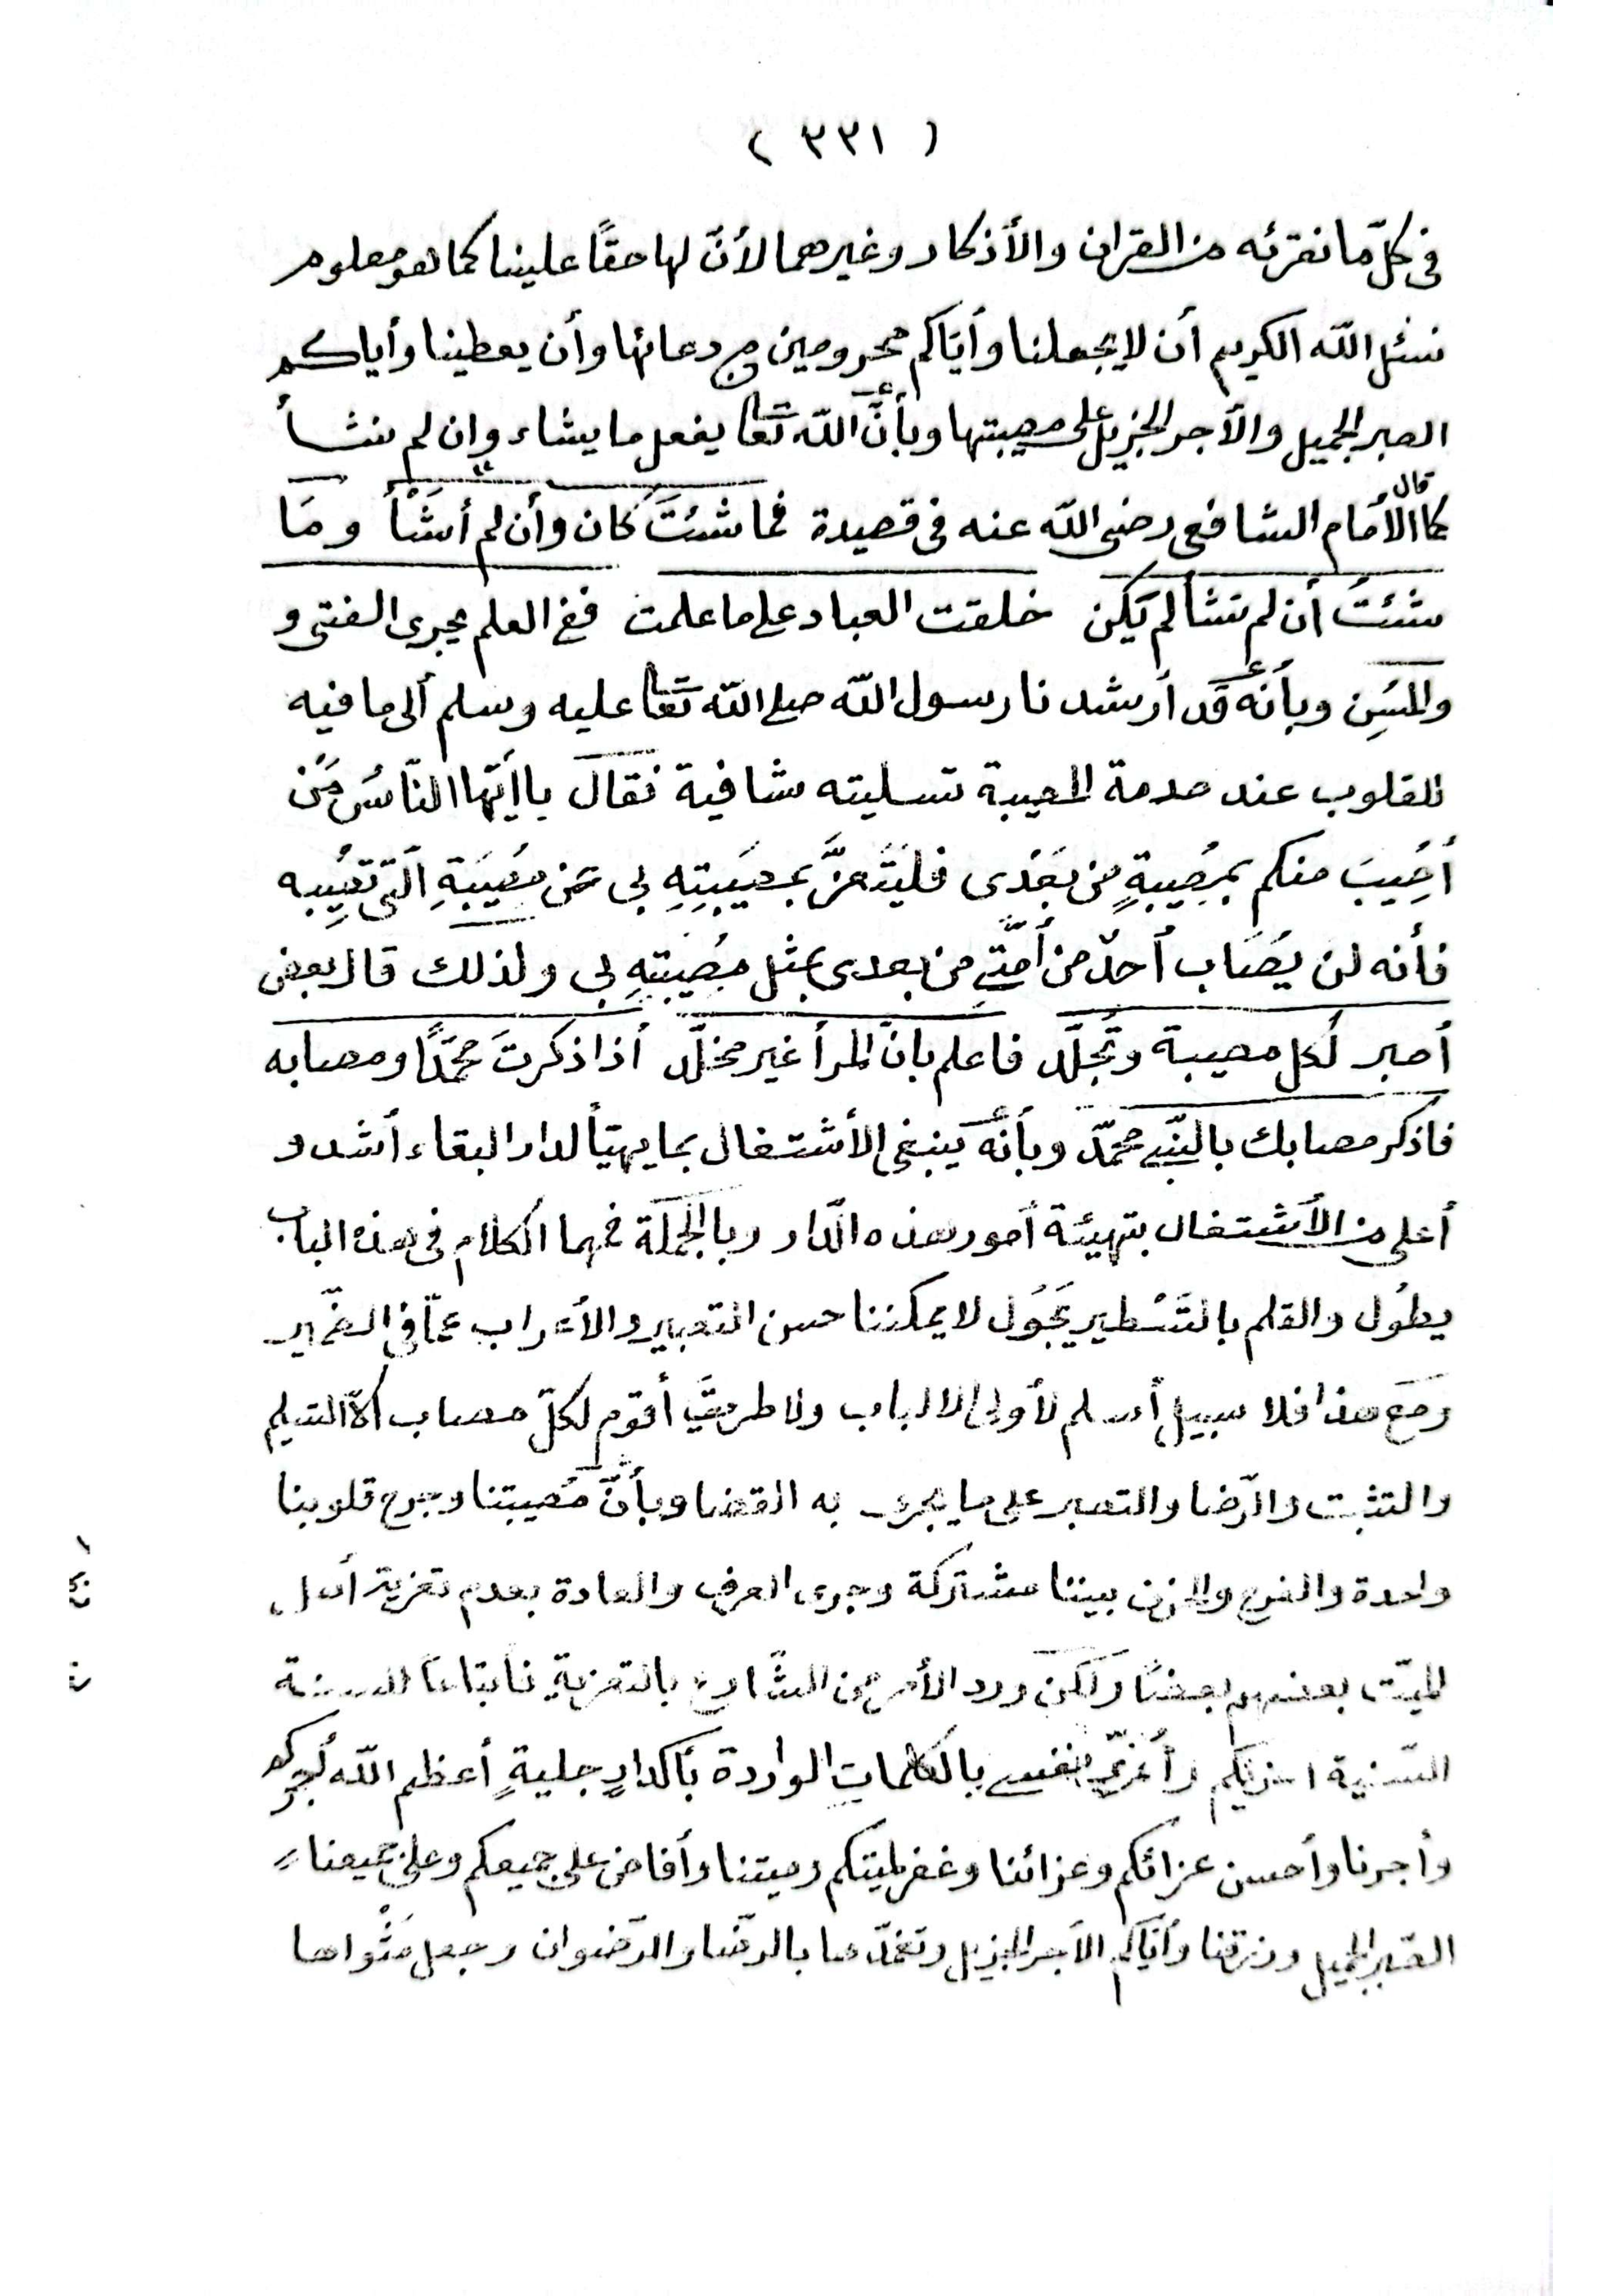 ( ٣٣١ )
فى كلّ ما نقرئه من القران والأذكار وغيرهما لأنّ لها حقًا علينا كما هو معلوم
نسئل اللّه الكريم أن لا يجعلنا وأيّاكم محرومين من دعائها وأن يعطينا وأياكم
الصبر الجميل والأجر الجزيل على مصيبتها وبأنَّ اللّه تَعَا يفعل ما يشاء وان لم نشأ
كما قال الأمَام الشافعى رضى اللّه عنه فى قصيدة فما شئتَ كان وأن لم أشَأْ ومَا
شئتُ أن لم تشأ لم يَكن خلقت العباد على ما علمت ففى العلم يجرى الفتى و
والمُسِن وبأنّه قَد أرشدنا رسول اللّه صلى اللّه تَعَا عليه وسلم ألى ما فيه
للقلوب عند صدمة المصيبة تسليته شافية فقالَ يا أيّها النّاسُ مَن
أُصِيبَ منكم بمُصِيبةٍ من بَعْدى فليَتَعزَّ بمصِيَبتِهِ بى عَن مصُيَبَةِ الّتى تصُيِبه
فأنه لن يصَاب أحدٌ من أمّتى من بعدى بمثل مصُيَبتهِ بى ولذلك قال بعض
أصبر لكل مصيبة وتَجلّد فاعلم بانّ المرأ غير مخلّد أذا ذكرتَ محمّدًا ومصابه
فاذكر مصابك بالنّبى محمّد وبأنّه ينبغى الأشتغال بما يهيّأ لدار البقاء أشد و
أعلى من الأشتغال بتهيئة أمور هذه الدّار وبالجملَة فهما الكلام فى هذه الباب
يطُول والقلم بالتَسْطير يجَوُل لا يمكننا حسن التعبير والأعراب عمّا فى الضّمير
ومَعَ هذا فلا سبيل أسلم لأولى الالباب ولا طريقَ أقوم لكلّ مصاب الاّ التسليم
والتثبت والرّضا والتصبر على ما يجرى به القضا وبأنّ مُصيبتنا وجرح قلوبنا
واحدة والفرح والحزن بيننا مشتركة وجرى العرف والعادة بعدم تعزية أهل
الميّت بعضهم بعضًا ولكن ورد الأمر من الشّارع بالتعزيةِ فابتاعًا للسنة
السّنية اعزيكم وأُعزّى نفسى بالكلمات الواردة بأكدارٍ جليةٍ أعظم اللّه أجركم
وأجرنا وأحسن عزائكم وعزائنا وغفر لميتكم وميتنا وأفاض على جميعكم وعلى جميعنا
الصّبر الجميل ورزقنا وأيّاكم الأجر الجزيل وتغمّدها بالرضّا والرّضوان وجعل مَثْواها